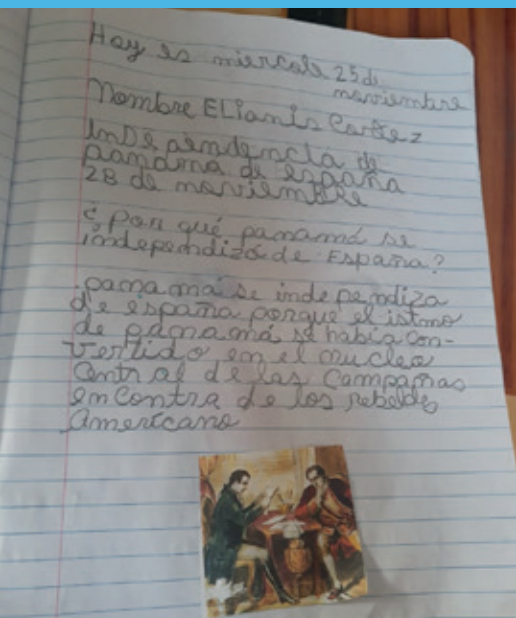 Hoy es miercole 25 de
noviembre
Nombre Elianis Cortez
InDe pendencia de
panama de españa
28 de noviembre
¿ Por qué panamá se
independizó de España?
panamá se independiza
de españa porque el istmo
de panamá se había con-
vertido en el nucleo
Central de las Campañas
en Contra de los rebeldes
americano